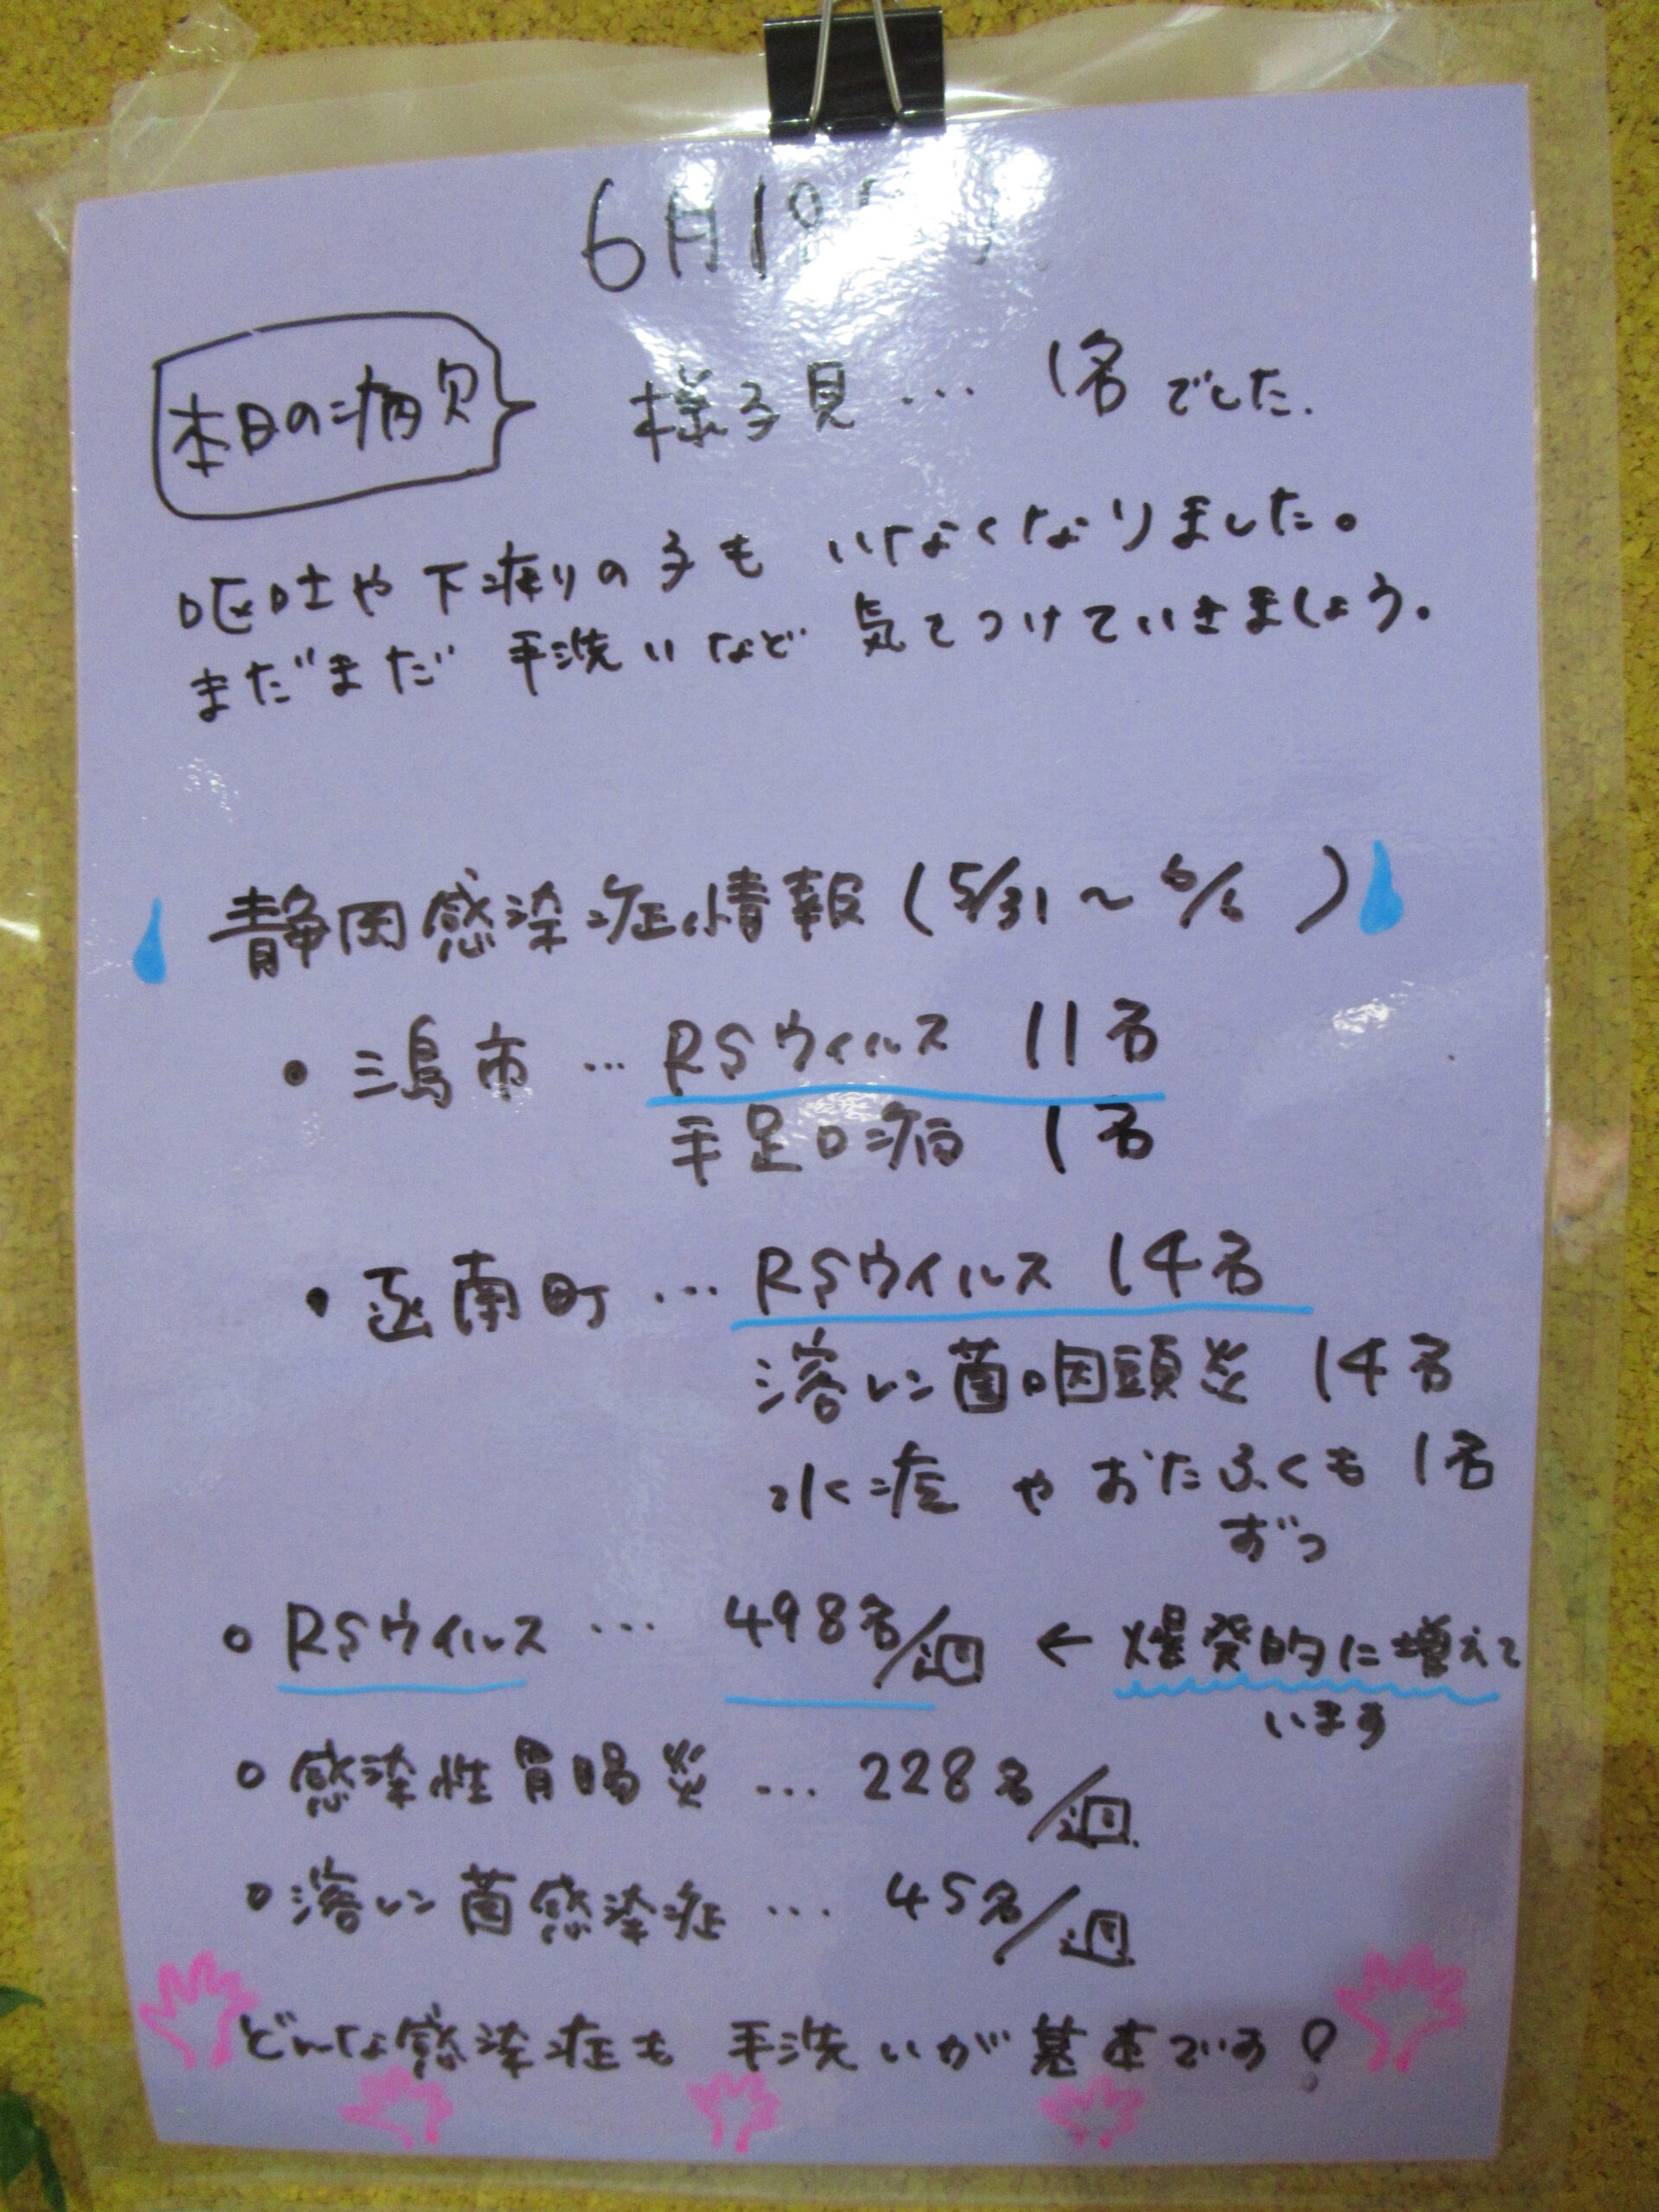 6月18
本日の病欠 様子見… 1名でした.
嘔吐や下痢の子もいなくなりました。
まだまだ手洗いなど気をつけていきましょう。
静岡感染症情報(5/31~6/6)
・三島市…RSウィルス 11名
手足口病 1名
・函南町…RSウイルス 14名
溶レン菌咽頭炎 14名
水痘やおたふくも1名
ずつ
○RSウイルス… 498名/週 ← 爆発的に増えて
います
○感染性胃腸炎…228名/週
○溶レン菌感染症… 45名/週
どんな感染症も手洗いが基本です!